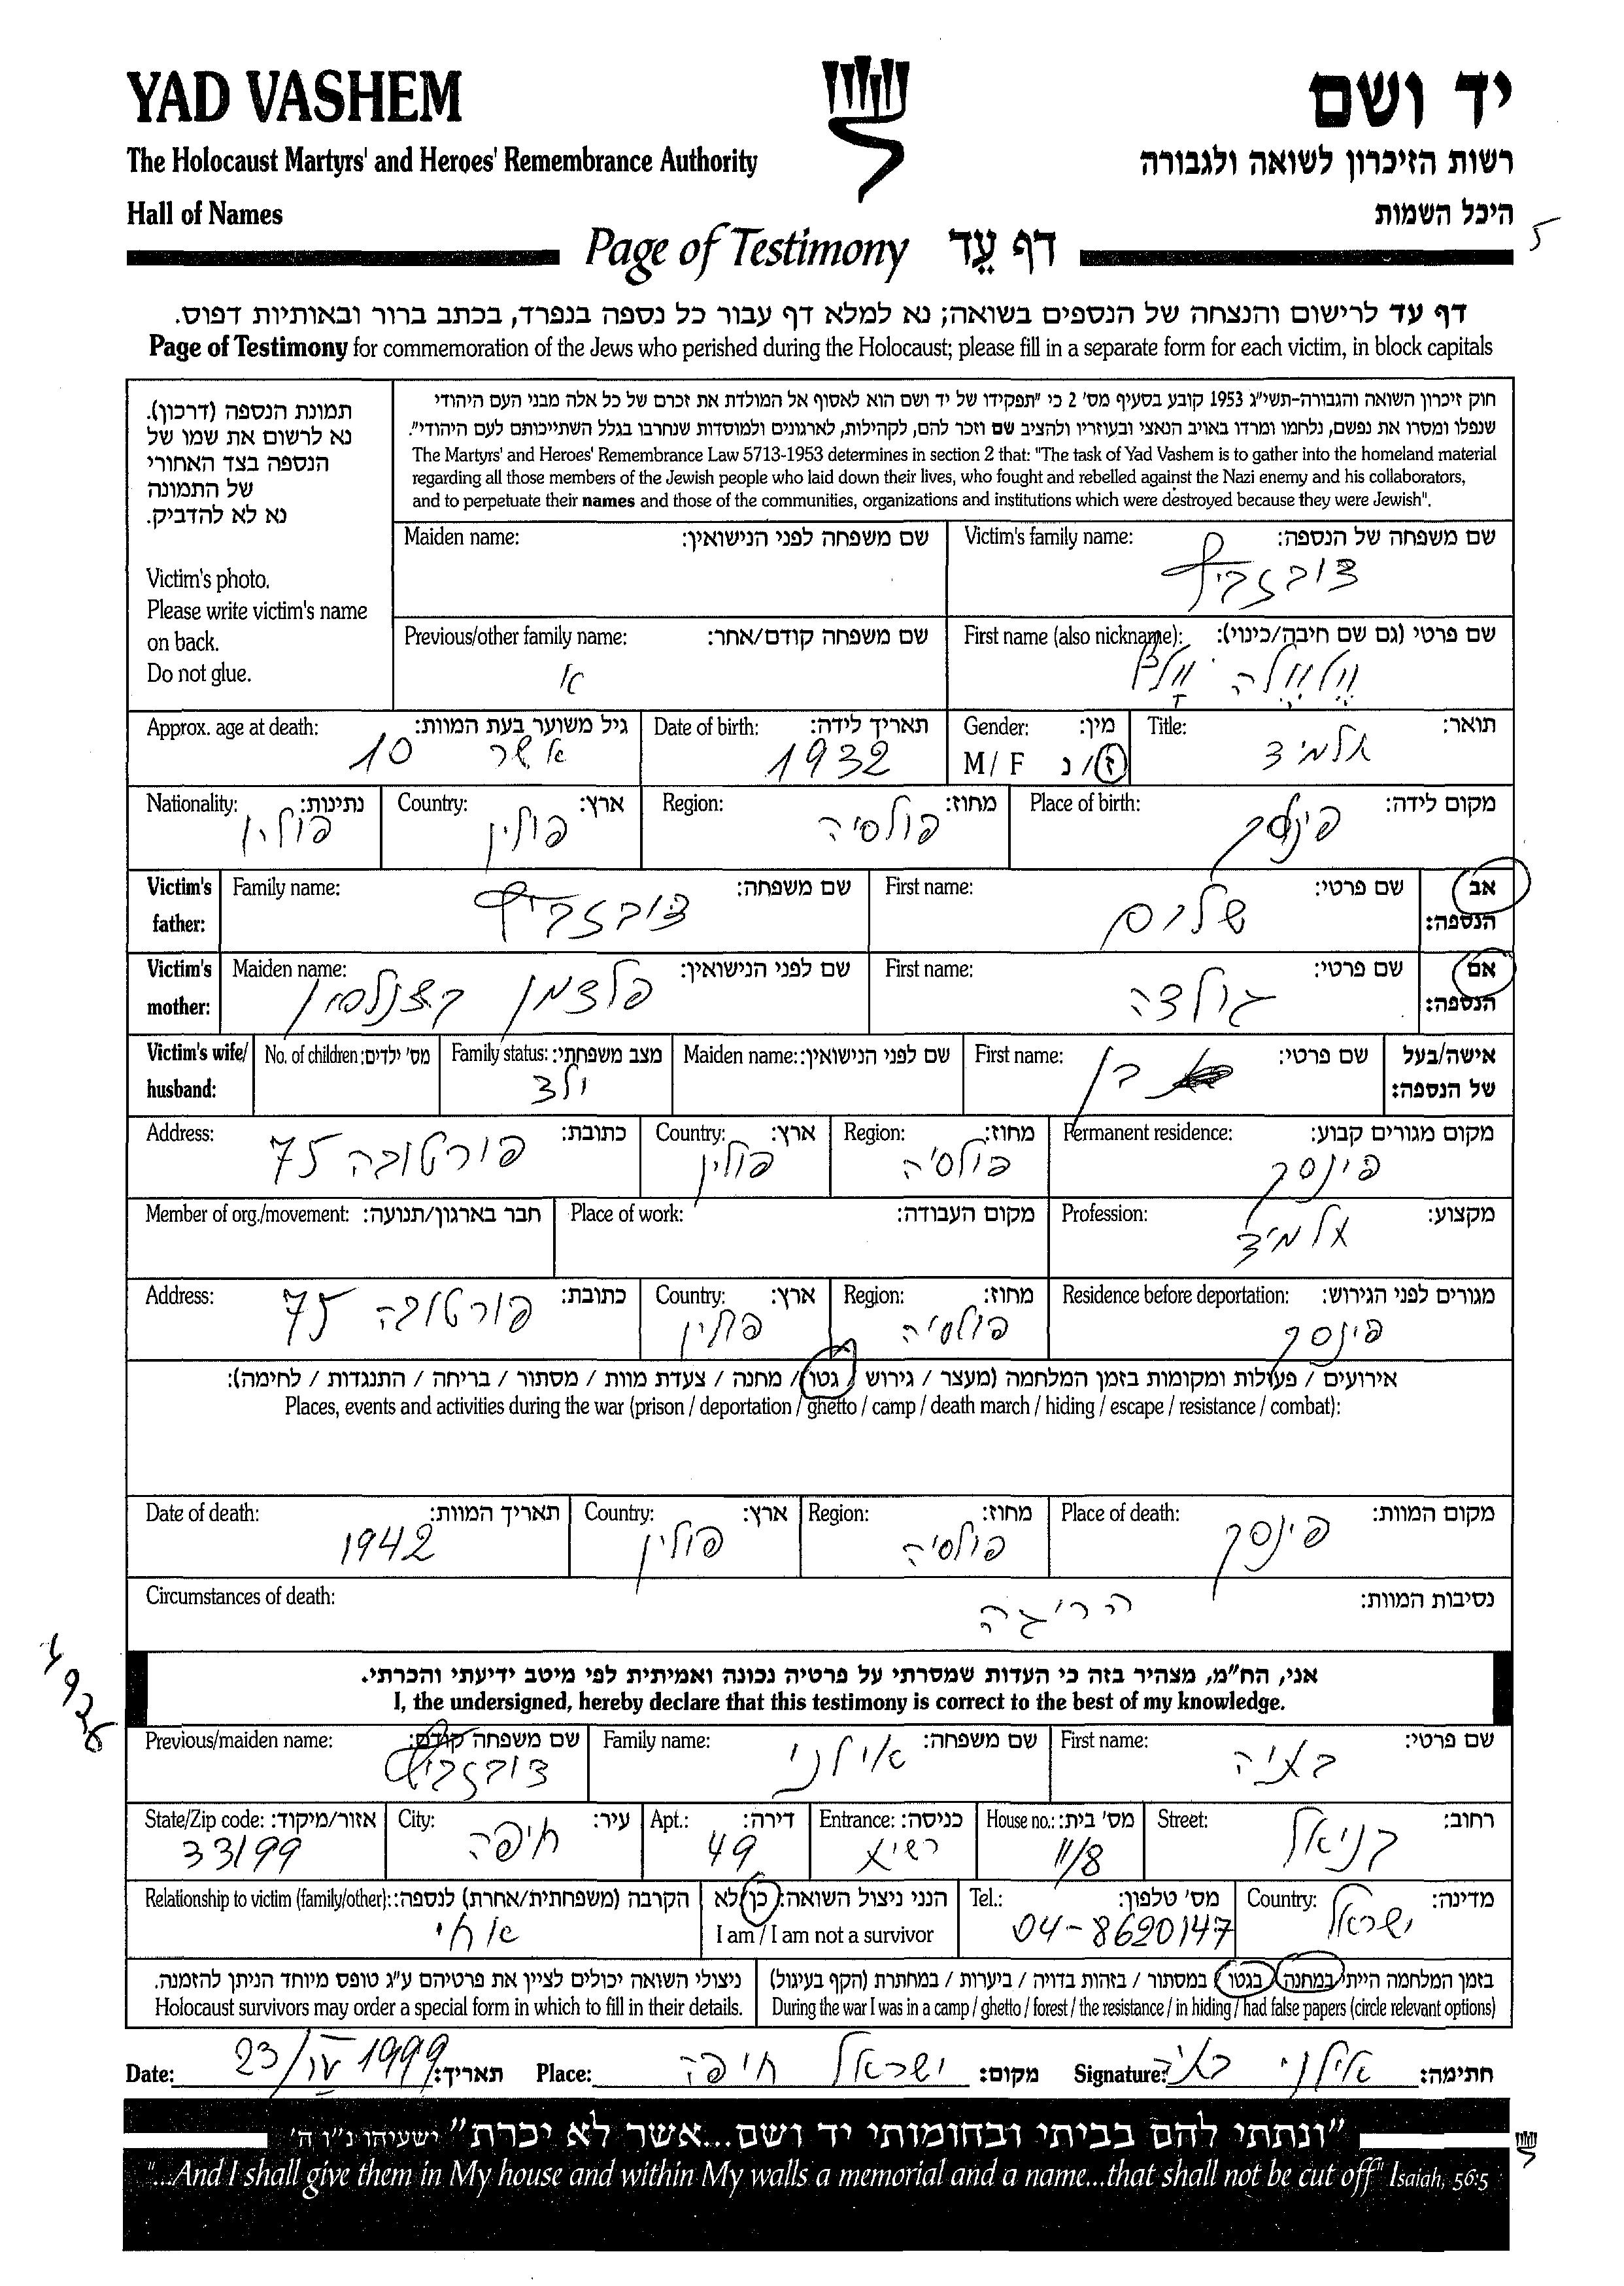 YAD VASHEM
יד ושם
The Holocaust Martyrs' and Heroes' Remembrance Authority
רשות הזיכרון לשואה ולגבורה
Hall of Names
היכל השמות
5
Page of Testimony דף עֵד
דף עד לרישום והנצחה של הנספים בשואה; נא למלא דף עבור כל נספה בנפרד, בכתב ברור ובאותיות דפוס.
Page of Testimony for commemoration of the Jews who perished during the Holocaust; please fill in a separate form for each victim, in block capitals
תמונת הנספה (דרכון).
נא לרשום את שמו של
הנספה בצד האחורי
של התמונה
נא לא להדביק.
Victim's photo.
Please write victim's name
on back.
Do not glue.
חוק זיכרון השואה והגבורה-תשי"ג 1953 קובע בסעיף מס' 2 כי "תפקידו של יד ושם הוא לאסוף אל המולדת את זכרם של כל אלה מבני העם היהודי
שנפלו ומסרו את נפשם, נלחמו ומרדו באויב הנאצי ובעוזריו ולהציב שם וזכר להם, לקהילות, לארגונים ולמוסדות שנחרבו בגלל השתייכותם לעם היהודי".
The Martyrs' and Heroes' Remembrance Law 5713-1953 determines in section 2 that: "The task of Yad Vashem is to gather into the homeland material
regarding all those members of the Jewish people who laid down their lives, who fought and rebelled against the Nazi enemy and his collaborators,
and to perpetuate their names and those of the communities, organizations and institutions which were destroyed because they were Jewish".
Victim's family name: שם משפחה של הנספה:
Maiden name: שם משפחה לפני הנישואין:
First name (also nickname): שם פרטי (גם שם חיבה/כינוי):
Previous/other family name: שם משפחה קודם/אחר:
Title: תואר: תלמיד
Gender: מין: M / F ז / נ
Date of birth: תאריך לידה: 1932
Approx. age at death: גיל משוער בעת המוות: 10
Place of birth: מקום לידה: פינסק
Region: מחוז: פולסיה
Country: ארץ: פולין
Nationality: נתינות: פולין
Victim's father: אב הנספה:
First name: שם פרטי: שלום
Family name: שם משפחה:
Victim's mother: אם הנספה:
First name: שם פרטי: גולדה
Maiden name: שם לפני הנישואין: פלדמן קצנלסון
Victim's wife/ husband: אישה/בעל של הנספה:
First name: שם פרטי:
Maiden name: שם לפני הנישואין:
Family status: מצב משפחתי: ילד
No. of children: מס' ילדים:
Permanent residence: מקום מגורים קבוע: פינסק
Region: מחוז: פולסיה
Country: ארץ: פולין
Address: כתובת: פורטובה 75
Profession: מקצוע: תלמיד
Place of work: מקום העבודה:
Member of org./movement: חבר בארגון/תנועה:
Residence before deportation: מגורים לפני הגירוש: פינסק
Region: מחוז: פולסיה
Country: ארץ: פולין
Address: כתובת: פורטובה 75
אירועים / פעילות ומקומות בזמן המלחמה (מעצר / גירוש / גטו / מחנה / צעדת מוות / מסתור / בריחה / התנגדות / לחימה):
Places, events and activities during the war (prison / deportation / ghetto / camp / death march / hiding / escape / resistance / combat):
Place of death: מקום המוות: פינסק
Region: מחוז: פולסיה
Country: ארץ: פולין
Date of death: תאריך המוות: 1942
Circumstances of death: נסיבות המוות: הריגה
אני, הח"מ, מצהיר בזה כי העדות שמסרתי על פרטיה נכונה ואמיתית לפי מיטב ידיעתי והכרתי.
I, the undersigned, hereby declare that this testimony is correct to the best of my knowledge.
First name: שם פרטי: בתיה
Family name: שם משפחה: אילני
Previous/maiden name: שם משפחה קודם:
Street: רחוב:
House no.: מס' בית: 11/8
Entrance: כניסה:
Apt.: דירה: 49
City: עיר: חיפה
State/Zip code: אזור/מיקוד: 33199
Country: מדינה: ישראל
Tel.: מס' טלפון: 04-8620147
הנני ניצול השואה: כן/לא
I am / I am not a survivor
Relationship to victim (family/other): הקרבה (משפחתית/אחרת) לנספה: אחי
בזמן המלחמה הייתי במחנה / בגטו / במסתור / בזהות בדויה / ביערות / במחתרת (הקף בעיגול)
During the war I was in a camp / ghetto / forest / the resistance / in hiding / had false papers (circle relevant options)
ניצולי השואה יכולים לציין את פרטיהם ע"ג טופס מיוחד הניתן להזמנה.
Holocaust survivors may order a special form in which to fill in their details.
Date: 23/IV 1999 תאריך: Place: ישראל חיפה מקום: Signature: אילני בתיה חתימה:
"ונתתי להם בביתי ובחומותי יד ושם...אשר לא יכרת" ישעיהו נ"ו ה'
"...And I shall give them in My house and within My walls a memorial and a name...that shall not be cut off" Isaiah, 56:5